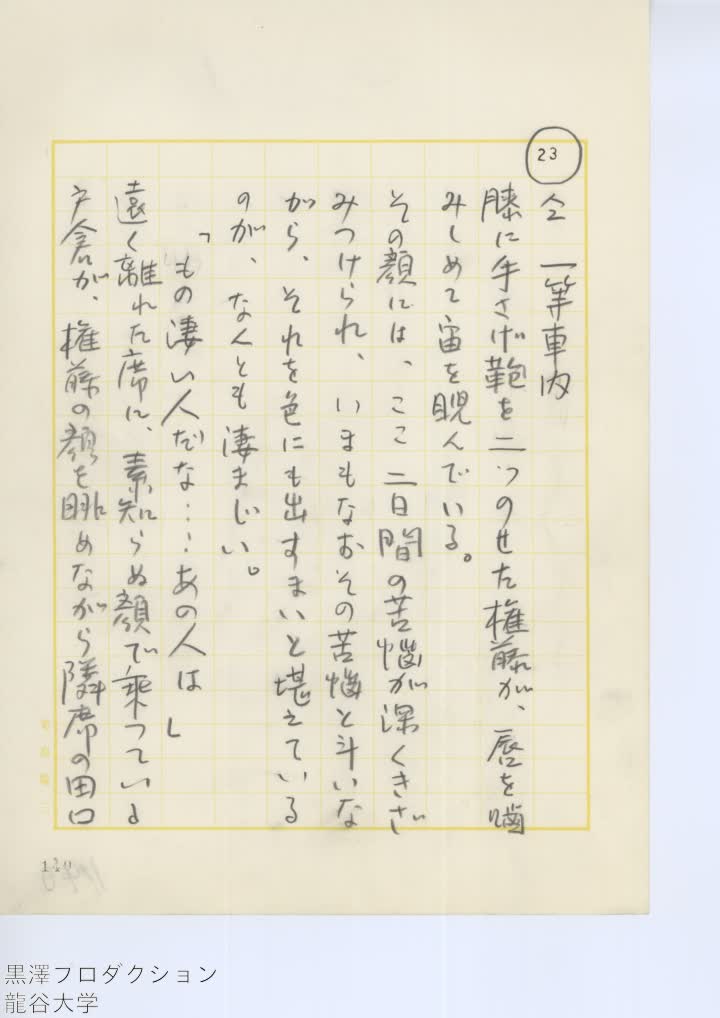 23
仝 一等車内
膝に手さげ鞄を二つのせた権藤が、唇を噛
みしめて宙を睨んでいる。
その顔には、ここ二日間の苦悩が深くきざ
みつけられ、いまもなおその苦悩と斗いな
がら、それを色にも出すまいと堪えている
のが、なんとも凄まじい。
「もの凄い人だな……あの人は」
遠く離れた席に、素知らぬ顔で乗っている
戸倉が、権藤の顔を眺めながら隣席の田口
黒澤プロダクション
龍谷大学